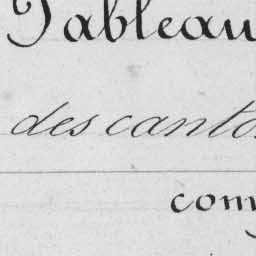 Tableau
des canto
com